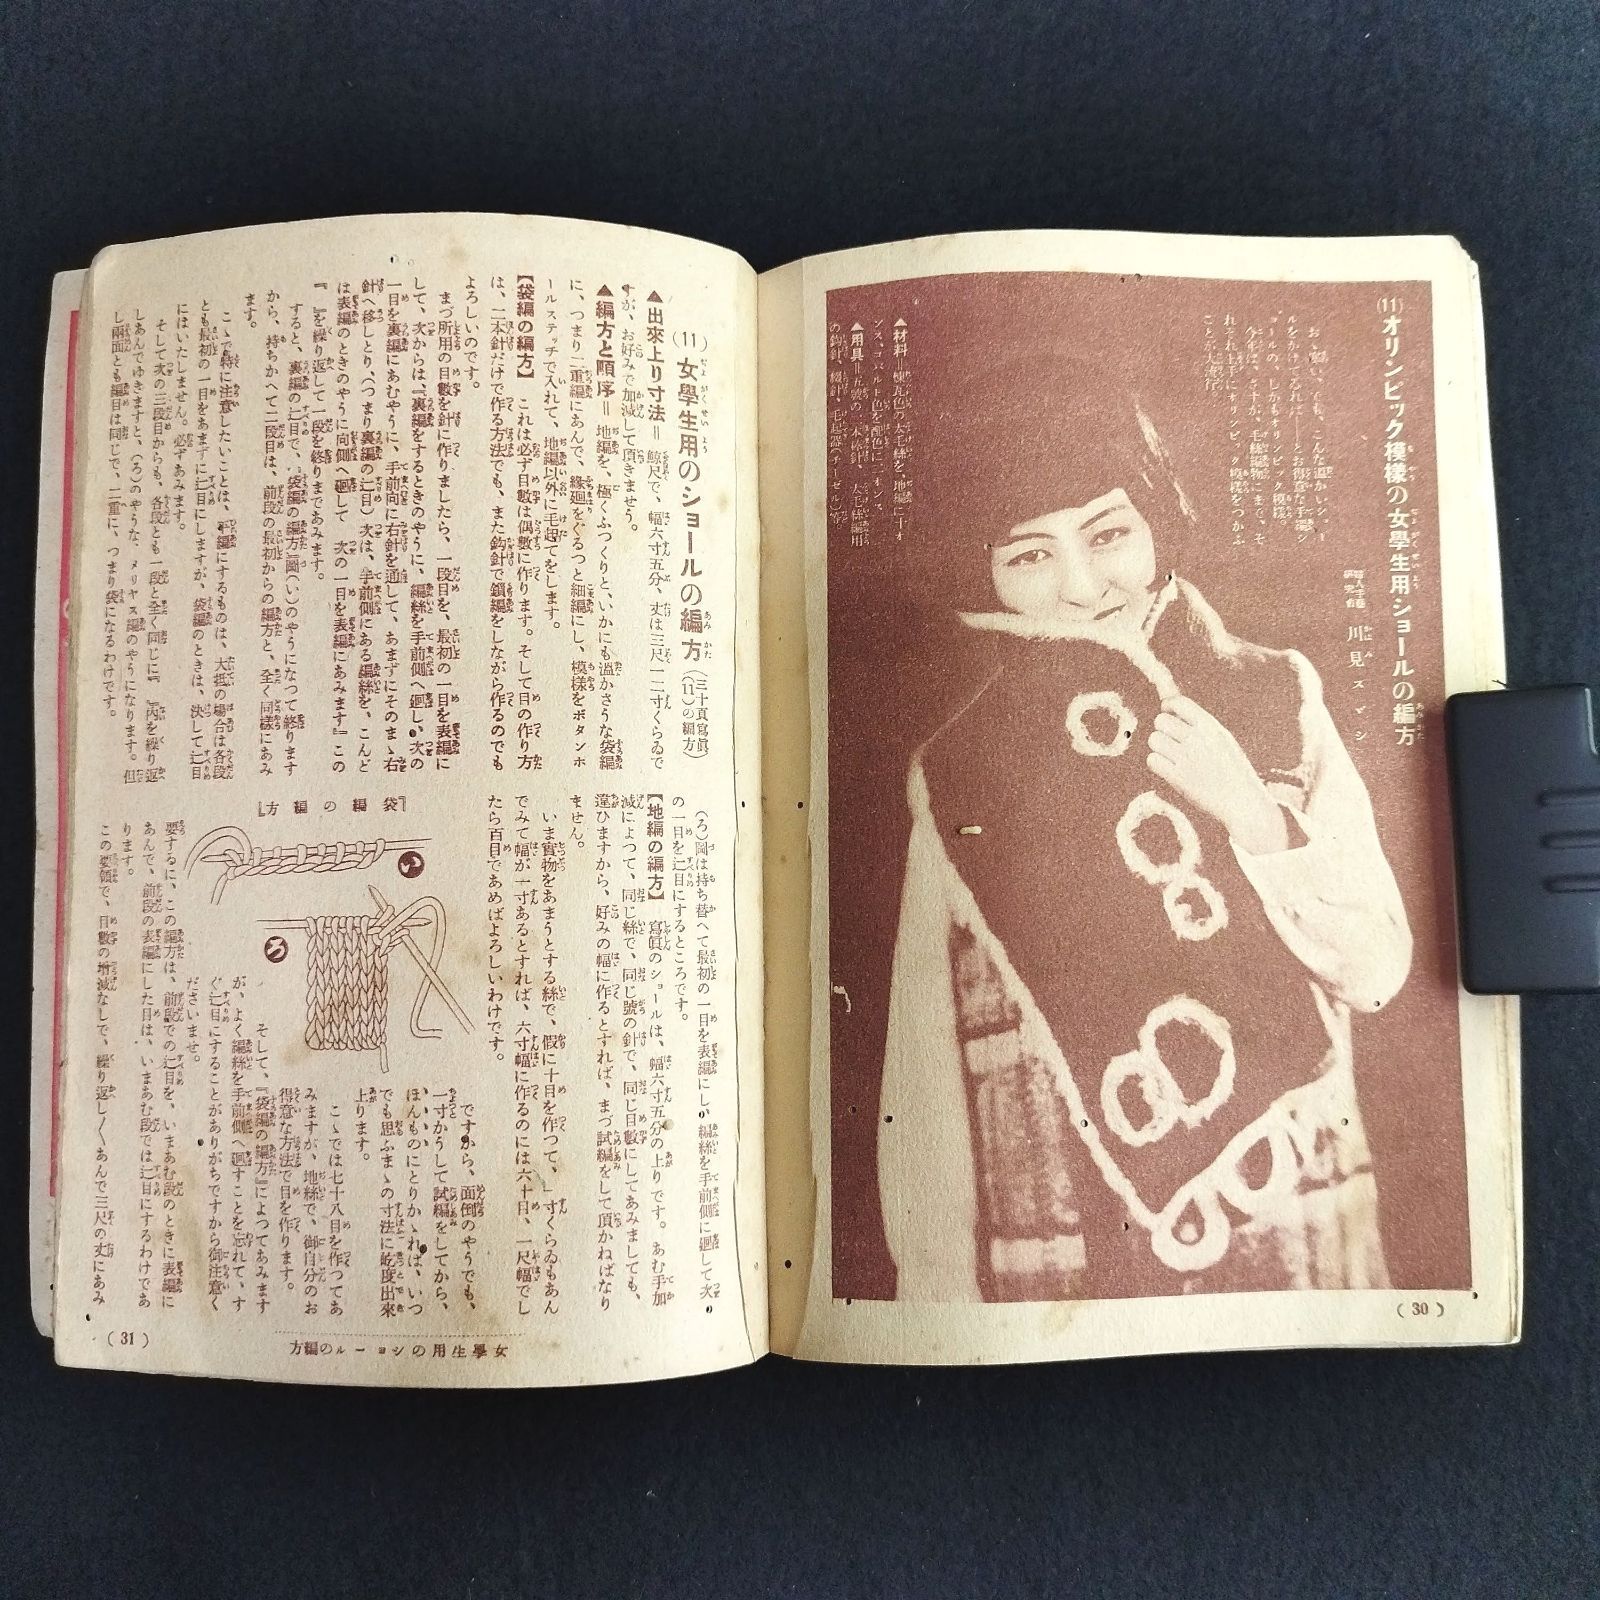 (11)オリンピック模様の女學生用ショールの編方
川見スヾシ
お、暖い。でも、こんな温かいショールをかけてゐるれば――とお得意な手編ショールの、しかもオリンピック模様。
今年は、さすが、毛絲編物にまで、それぞれ上手にオリンピック模様をつかふことが大流行。
▲材料 煉瓦色の太毛絲を地編に十オンス、コバルト色を配色に二オンス。
(30)
(11)女學生用のショールの編方(三十頁寫眞(11)の編方)
▲出來上り寸法=鯨尺で、幅六寸五分、丈は三尺一二寸くらゐですが、お好みで加減して頂きませう。
▲編方と順序=地編を、極くふつくりと、いかにも温かさうな袋編に、つまり二重編にあんで、緣廻をぐるつと細編にし、模様をボタンホールステッチで入れて、地編以外に毛起てをします。
【袋編の編方】 これは必ず目數は偶數に作ります。そして目の作り方は、二本針だけで作る方法でも、また鈎針で鎖編をしながら作るのでもよろしいのです。
まづ所用の目數を針に作りましたら、一段目を、最初の一目を表編にして、次からは、『裏編をするときのやうに、編絲を手前側へ廻し、次の一目を裏編にあむやうに、手前向に右針を通して、あまずにそのまゝ右針へ移しとり、(つまり裏編の辷目)次は、手前側にある編絲を、こんどは表編のときのやうに向側へ廻して 次の一目を表編にあみます』この『 』を繰り返して一段を終りまであみます。
すると、裏編の辷目で、袋編の編方圖(い)のやうになつて終りますから、持ちかへて二段目は、前段の最初からの編方と、全く同様にあみます。
こゝで特に注意したいことは、平編にするものは、大抵の場合は各段とも最初の一目をあまずに辷目にしますが、袋編のときは、決して辷目にはいたしません。必ずあみます。
そして次の三段目からも、各段とも一段と全く同じに『 』内を繰り返しあんでゆきますと、(ろ)のやうな、メリヤス編のやうになります。但し兩面とも編目は同じで、二重に、つまり袋になるわけです。
(ろ)圖は持ち替へて最初の一目を表編にし、編絲を手前側に廻して次の一目を辷目にするところです。
【地編の編方】 寫眞のショールは、幅六寸五分の上りです。あむ手加減によつて、同じ絲で、同じ號の針で、同じ目數にしてあみましても、違ひますから、好みの幅に作るとすれば、まづ試編をして頂かねばなりません。
いま實物をあまうとする絲で、假に十目を作つて、一寸くらゐもあんでみて幅が一寸あるとすれば、六寸幅に作るのには六十目、一尺幅でしたら百目であめばよろしいわけです。
ですから、面倒のやうでも、一寸かうして試編をしてから、ほんものにとりかゝれば、いつでも思ふまゝの寸法に屹度出來上ります。
こゝでは七十八目を作つてあみますが、地絲で、御自分のお得意な方法で目を作ります。
そして、『袋編の編方』によつてあみますが、よく編絲を手前側へ廻すことを忘れて、すぐ辷目にすることがありがちですから御注意くださいませ。
要するに、この編方は、前段での辷目を、いまあむ段のときに表編にあんで、前段の表編にした目は、いまあむ段では辷目にするわけであります。
この要領で、目數の增減なしで、繰り返し〱あんで三尺の丈にあみ
『袋編の編方』
い
ろ
女學生用のショールの編方
(31)